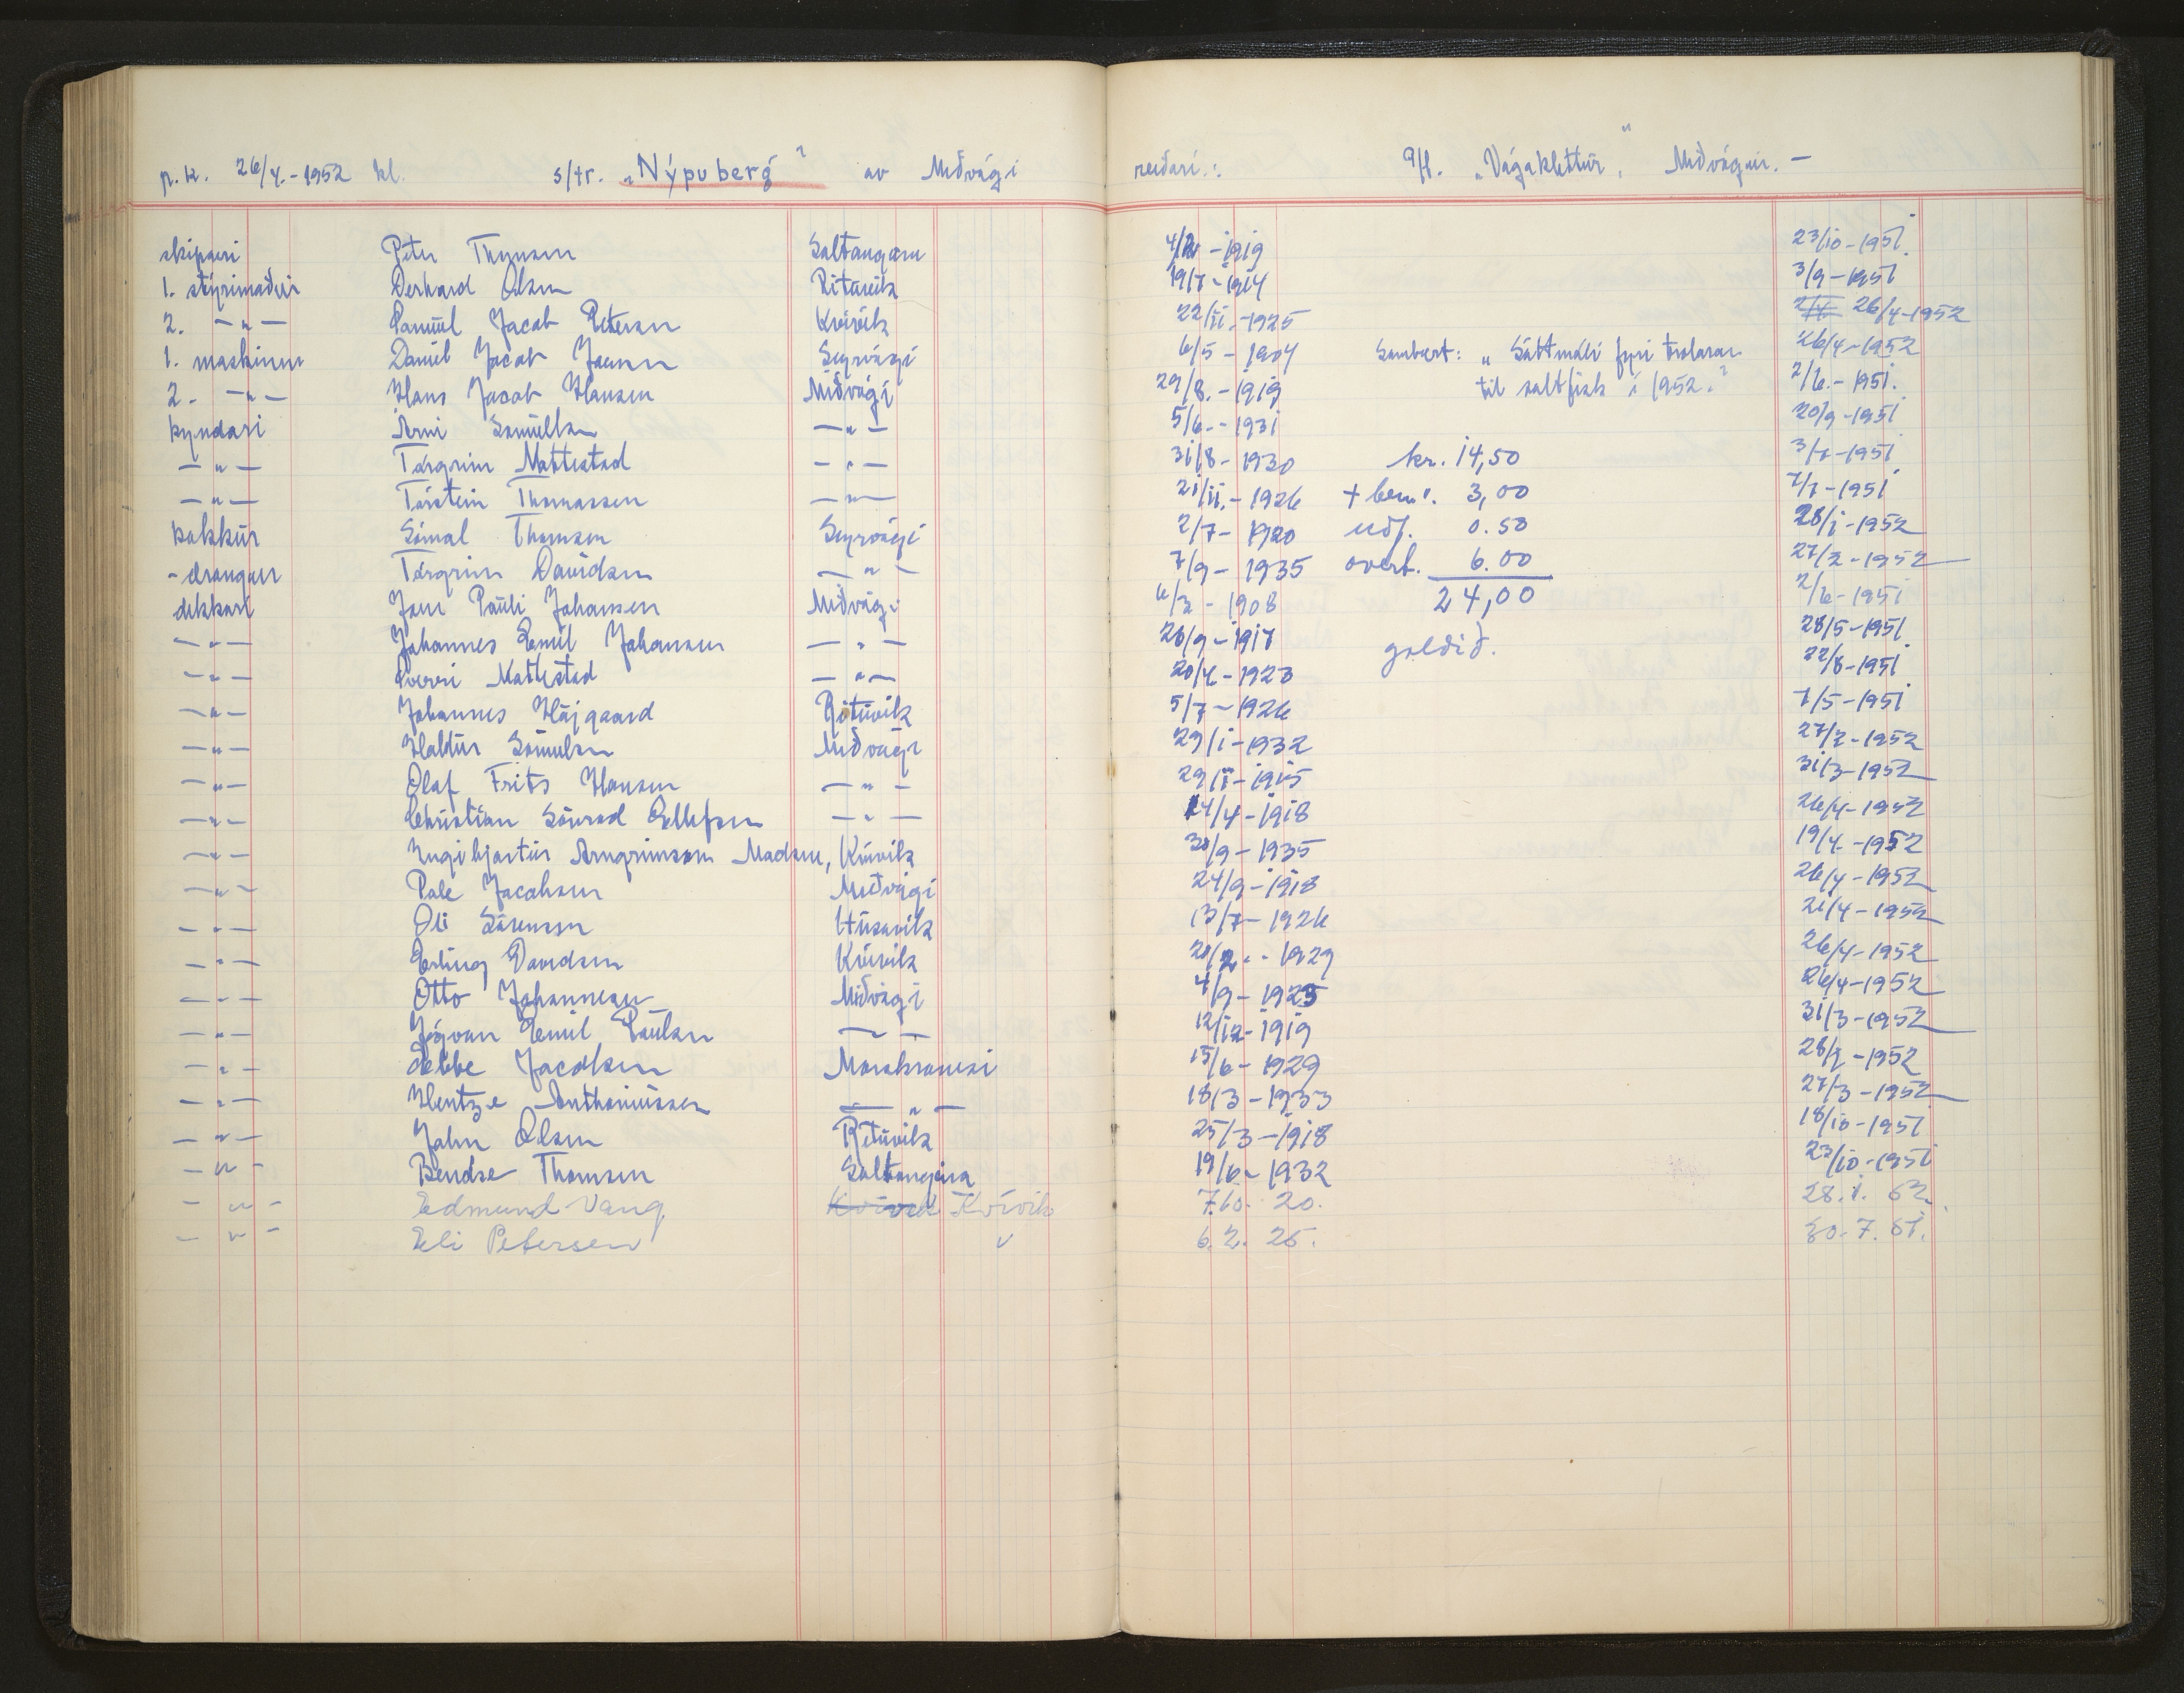 p.k. 26/4.-1952 kl. s/tr. „Nýpuberg" av Miðvági reiðarí.: P/f. „Vágaklettur", Miðvágur. —
skipari Peter Thomsen Saltangará 4/2 -1919 23/10-1951.
1. stýrimaður Derhard Olsen Ritúvík 19/7-1914 3/9-1951
2. —"— Samuel Jacob Petersen Kvívík 22/11.-1925 26/4-1952
1. maskinm Daniel Jacob Joensen Sørvági 6/5 - 1904 Sambært: „Sáttmáli fyri trolarar 26/4-1952
2. —"— Hans Jacob Hansen Miðvági 29/8.-1919 til saltfisk í 1952." 2/6.-1951.
kyndari Árni Samuelsen —"— 5/6.-1931 20/9-1951
—"— Tórgrim Mattestad —"— 31/8-1930 kr. 14,50 3/7-1951
—"— Tórstein Thomassen —"— 21/11.-1926 + bem". 3,00 7/7-1951
kokkur Sámal Thomsen Sørvági 2/7-1920 udj. 0.50 28/1-1952
-drongur Tórgrim Davidsen —"— 7/9-1935 overt. 6.00 27/2-1952
dekkari Jens Pauli Johansen Miðvági 6/3-1908 24,00 2/6-1951
—"— Johannes Emil Johansen —"— 28/9-1917 goldið. 28/5-1951
—"— Sverri Mattestad —"— 20/4-1923 22/8-1951
—"— Johannes Højgaard Ritúvík 5/7-1926 7/5-1951
—"— Haldur Samuelsen Miðvági 29/1-1932 27/2-1952
—"— Olaf Frits Hansen —"— 29/11-1915 31/3-1952
—"— Christian Sámund Ellefsen —"— 14/4-1918 26/4-1952
—"— Ingibjartur Arngrimsson Madsen, Kvívík 30/9-1935 19/4.-1952
—"— Pole Jacobsen Miðvági 24/9-1918 26/4-1952
—"— Oli Sørensen Húsavík 13/7-1926 21/4-1952
—"— Erling Davidsen Kvívík 20/2.-1929 26/4-1952
—"— Otto Johannesen Miðvági 4/9-1925 26/4-1952
—"— Jógvan Emil Poulsen —"— 12/12-1919 31/3-1952
—"— Jebbe Jacobsen Morskranesi 15/6-1929 28/2-1952
—"— Hentze Anthoniussen —"— 18/3-1933 27/3-1952
—"— John Olsen Ritúvík 25/3-1918 18/10-1951
—"— Bendse Thomsen Saltangará 19/6-1932 23/10-1951
—"— Edmund Vang Kvívík Kvívík 7.10. 20. 28.1. 52.
—"— Eli Petersen " 6.2. 25. 30.7.51.